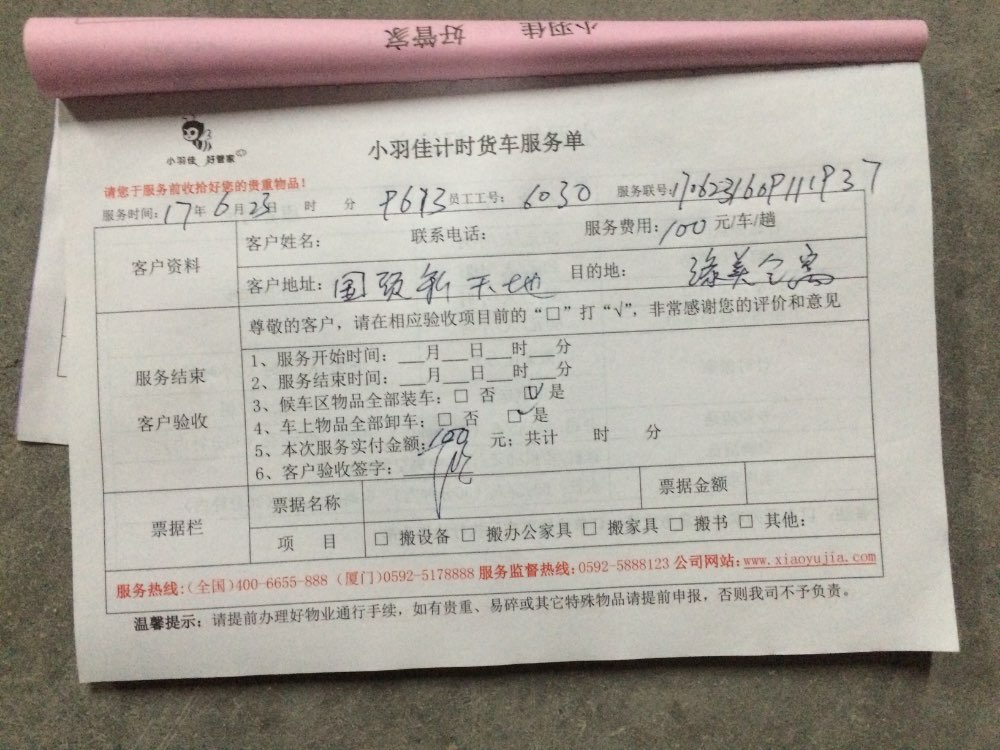 小羽佳 好管家
小羽佳 好管家
小羽佳计时货车服务单
请您于服务前收拾好您的贵重物品!
服务时间:17年6月23日 时 分 9613 员工工号: 6030 服务联号:1706231609111937
客户资料
客户姓名: 联系电话: 服务费用:100元/车/趟
客户地址:国贸新天地 目的地:
尊敬的客户,请在相应验收项目前的“□”打“√”,非常感谢您的评价和意见
服务结束
客户验收
1、服务开始时间:___月___日___时___分
2、服务结束时间:___月___日___时___分
3、候车区物品全部装车:□ 否 ☑ 是
4、车上物品全部卸车:□ 否 □ 是
5、本次服务实付金额:100 元;共计 时 分
6、客户验收签字:
票据栏
票据名称 票据金额
项 目 □ 搬设备 □ 搬办公家具 □ 搬家具 □ 搬书 □ 其他:
服务热线:(全国)400-6655-888 (厦门)0592-5178888 服务监督热线:0592-5888123 公司网站:www.xiaoyujia.com
温馨提示:请提前办理好物业通行手续,如有贵重、易碎或其它特殊物品请提前申报,否则我司不予负责。